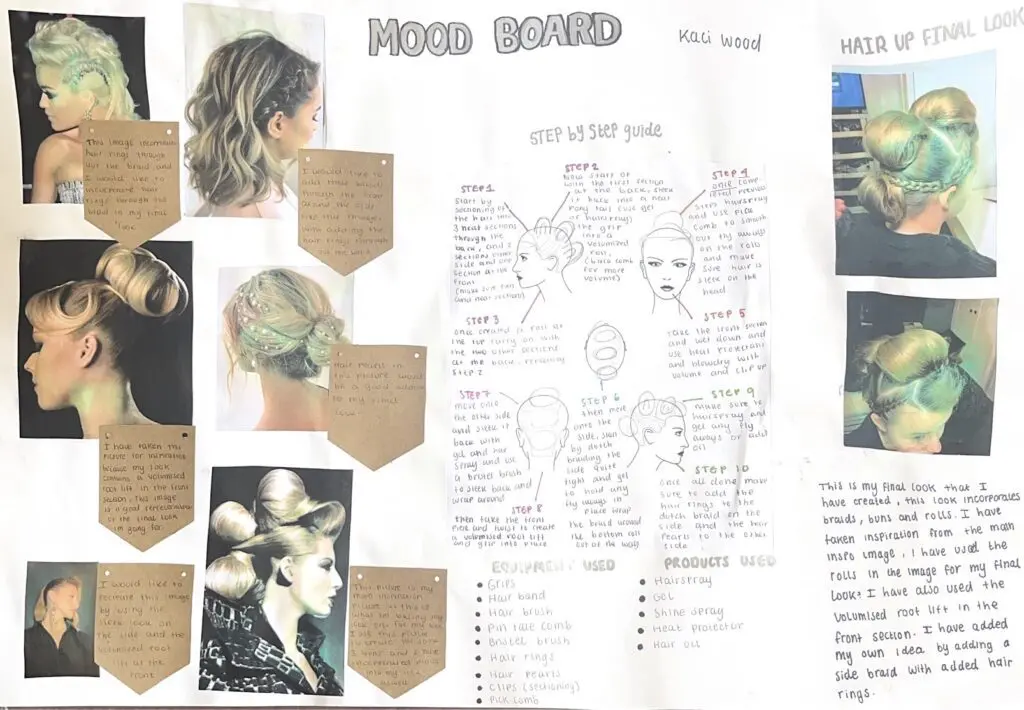 MOOD BOARD
Kaci Wood
HAIR UP FINAL LOOK
This image
hair rings through
out the braid and
I would like to
incorporate hair
rings through the
braid in my final
look
I would like to
add
through the
around the side
like this images
with adding the
hair rings through
out the braid
Hair pearls in
this picture would
be a good
to my final
look
I have taken this
picture for inspiration
because my look
contains a volumised
root lift in the front
section. This image
is a good representation
of the final look
im going for.
I would like to
recreate this image
by using the
sleek look on
the side and the
volumised root
lift at the
front
This picture is my
main inspiration
STEP by STEP guide
STEP 1
Start by
sectioning of
the hair into
3 neat sections
through the
back, and 2
sections either
side and one
section at the
front
STEP 2
Now start of
with the first section
at the back, sleek
it back into a neat
Pony tail (use gel
or hairspray)
the grip
into a
volumised
roll,
for more
volume)
STEP 3
once created 1 roll at
the top carry on with
the two other sections
at the back, repeating
STEP 2
STEP 4
once
Steps hairspray
and use pick
comb to smooth
out fly aways
on the rolls
and make
sure hair is
sleek on the
head
STEP 5
take the front section
and wet down and
use heat protectant
and blowdry with
volume and clip up
STEP 6
then move
onto the
side, start
by dutch
braiding the
side quite
tight and gel
to hold any
fly aways in
place wrap
the braid around
the bottom roll
out of the way
STEP 7
move onto
the other side
and sleek it
back with
gel and hair
spray and use
a bristle brush
to sleek back and
wrap around
STEP 8
then take the front
piece and twist to create
a volumised root lift
and grip into place
STEP 9
Make sure to
hairspray and
get any fly
aways or add
oil
STEP 10
once all done make
sure to add the
hair rings to the
dutch braid on the
side and the hair
pearls to the other
side
EQUIPMENT USED
Grips
Hair band
Hair brush
Pin tale comb
Bristel brush
Hair rings
Hair pearls
Clips (sectioning)
Pick comb
PRODUCTS USED
Hairspray
Gel
Shine spray
Heat protector
Hair oil
This is my final look that I
have created, this look incorporates
braids, buns and rolls. I have
taken inspiration from the main
inspo image, I have used the
rolls in the image for my final
look. I have also used the
volumised root lift in the
front section. I have added
my own idea by adding a
side braid with added hair
rings.